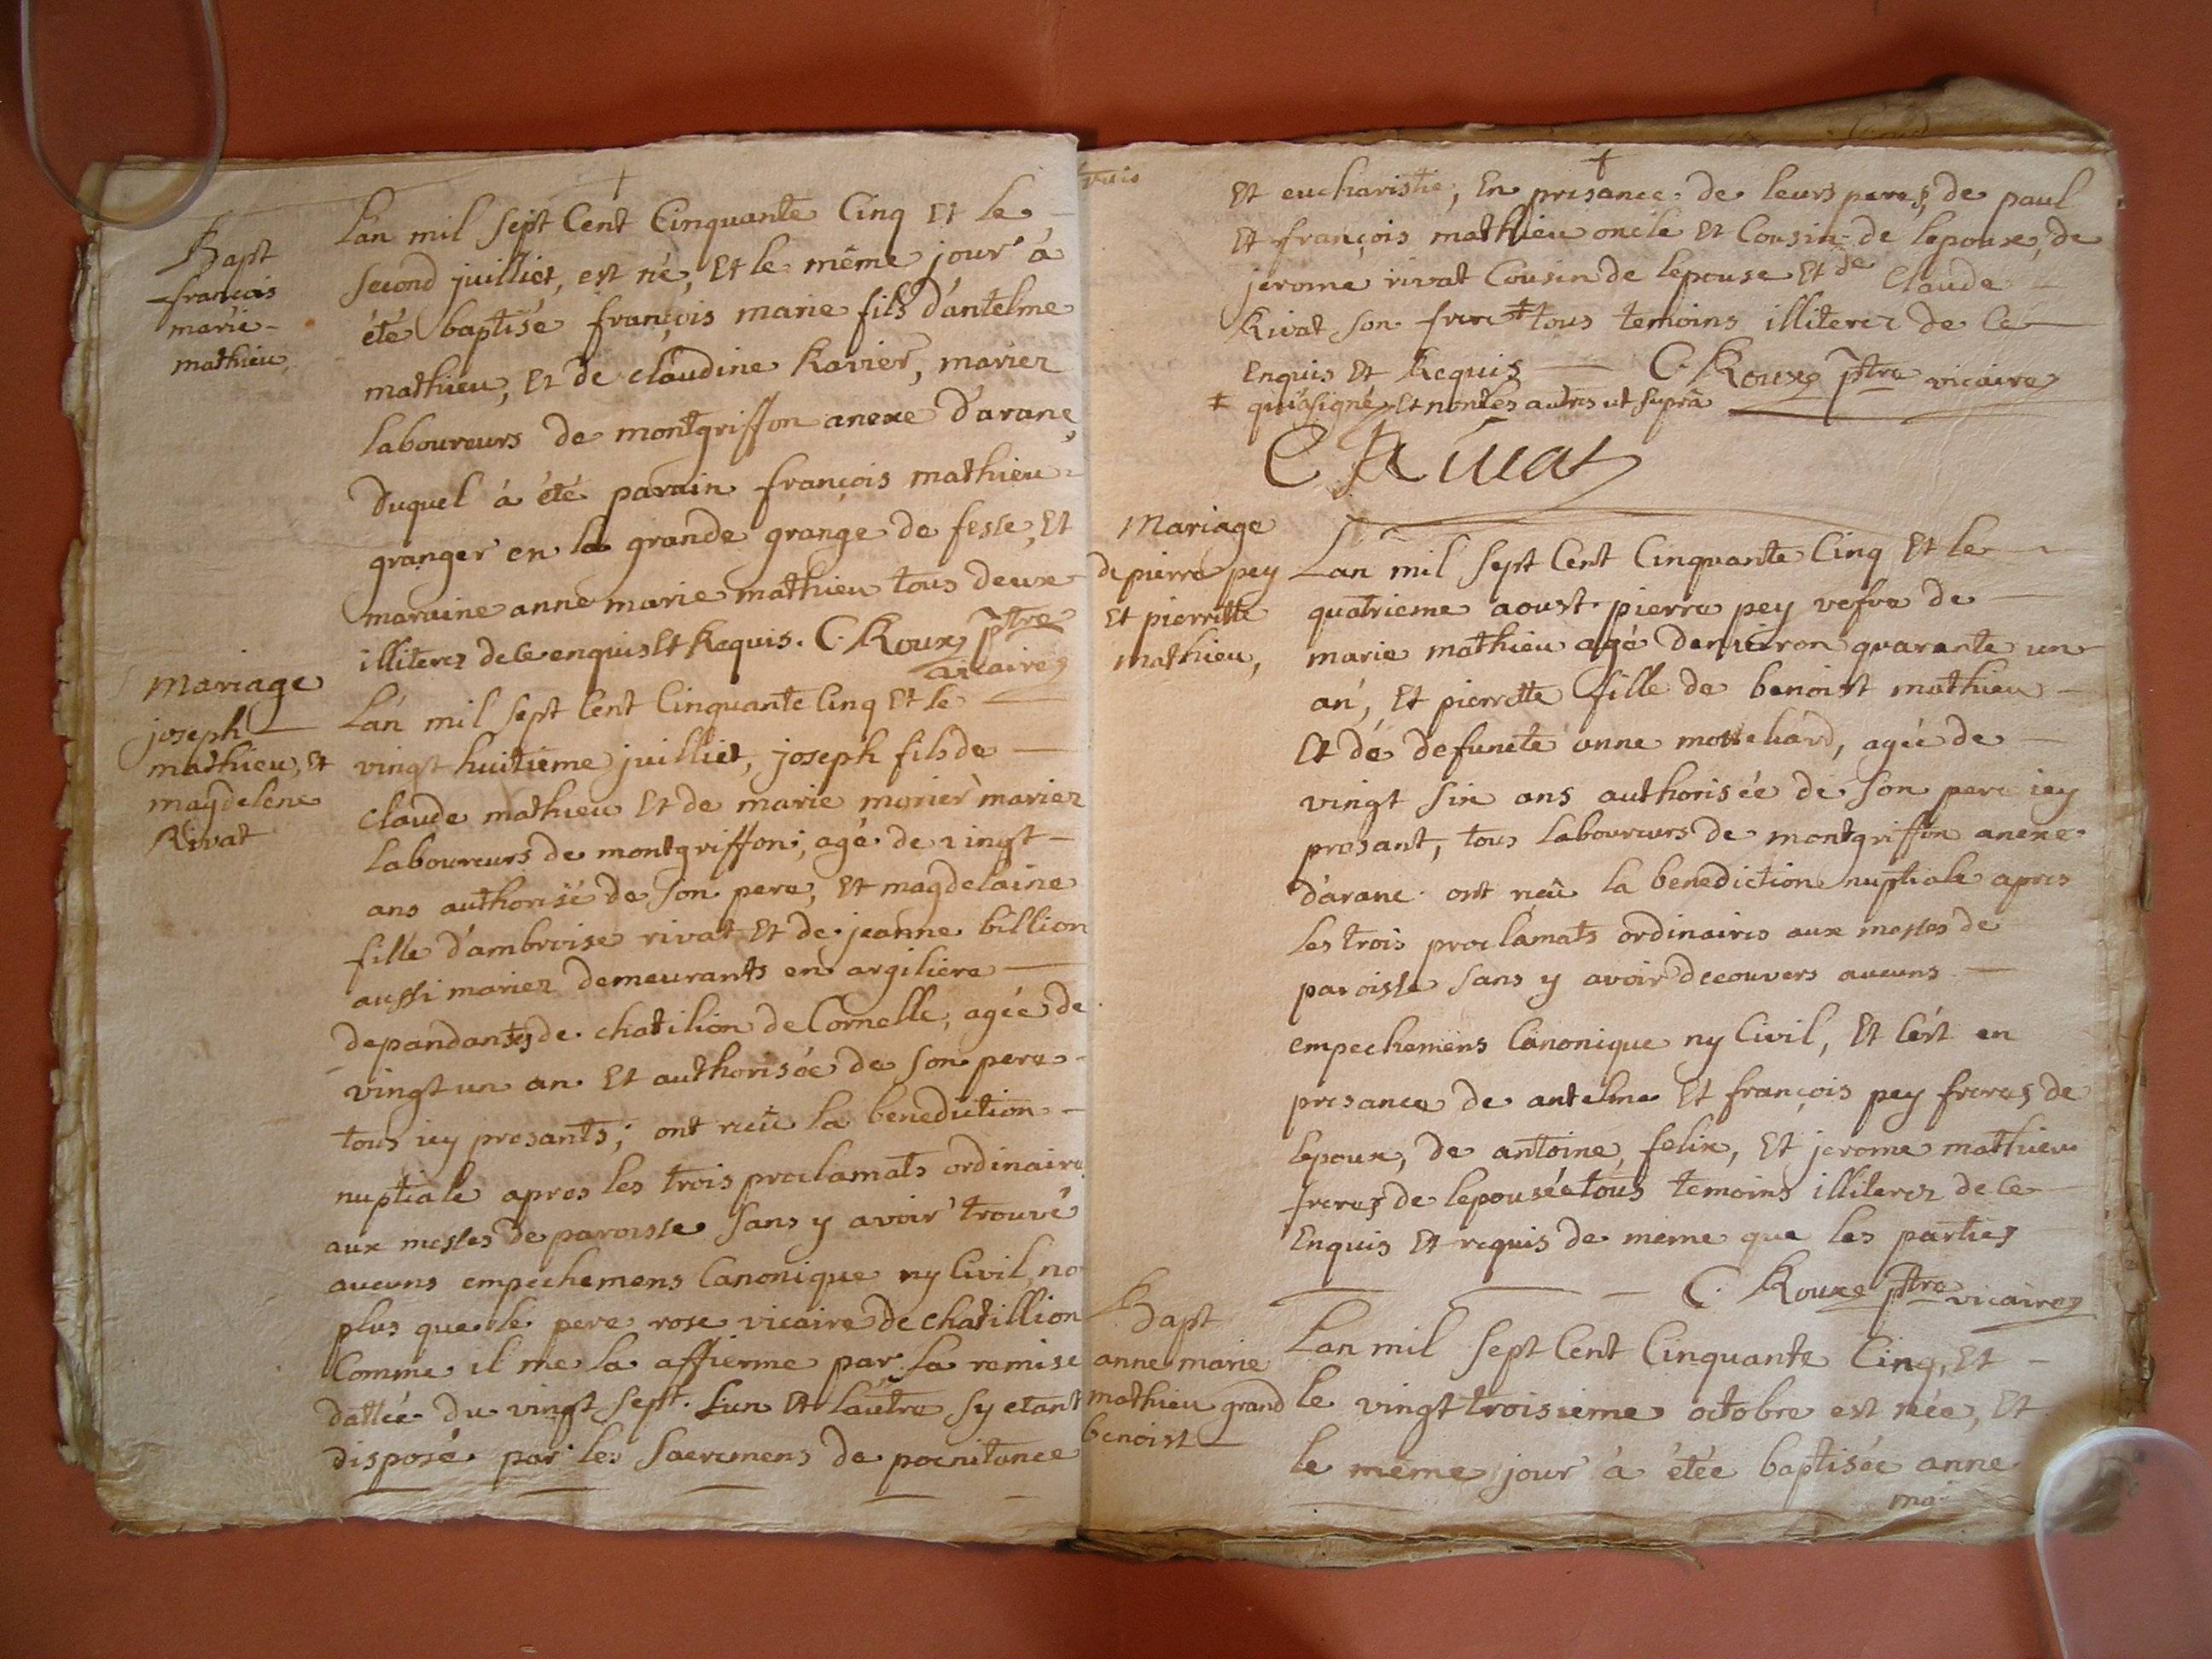 Bapt
françois
marie
mathieu
Lan mil sept Cent Cinquante Cinq Et le
second juilliet, est né, Et le même jour à
été baptisé françois marie fils d'antelme
mathieu, Et de claudine Ravier, mariez
laboureurs de montgriffon anexe d'aranc,
duquel à été parain françois mathieu
granger en la grande grange de fesse, Et
maraine anne marie mathieu tous deux
illiterez de ce enquis Et Requis. C. Roux ptre
vicaire
Mariage
joseph
mathieu, Et
magdelene
Rivat
Lan mil sept Cent Cinquante Cinq Et le
vingt huitieme juilliet, joseph fils de
claude mathieu Et de marie morier mariez
laboureurs de montgriffon; agé de vingt
ans authorisé de son pere, Et magdelaine
fille d'ambroise rivat Et de jeanne billion
aussi mariez demeurants en argiliere
dependants de chatilion de Cornelle, agée de
vingt un an Et authorisée de son pere
tous icy presants; ont reçu la benediction
nuptiale apres les trois proclamats ordinaire
aux messes de paroisse sans y avoir trouvé
aucuns empechemens Canonique ny Civil, no
plus que le pere rose vicaire de chatillion
Comme il me la affierme par la remise
dattée du vingt sept. L'un Et lautre sy etant
disposé par les sacremens de poenitance
Et eucharistie; En presance de leurs peres, de paul
Et françois mathieu oncle Et Cousin de lepoux, de
jerome rivat Cousin de lepouse Et de Claude
Rivat son frere ‡ tous temoins illiterez de Ce
Enquis Et Requis C. Roux ptre vicaire
‡ qui a signé Et non les autres ut supra
C Rivat
Mariage
de pierre pey
Et pierrette
mathieu,
Lan mil sept Cent Cinquante Cinq Et le
quatrieme aoust pierre pey vefve de
marie mathieu agé denviron quarante un
an, Et pierrette fille de benoist mathieu
Et de defuncte anne montchard, agée de
vingt six ans authorisée de son pere icy
presant, tous laboureurs de montgriffon anexe
d'aranc ont reçu la benediction nuptiale apres
les trois proclamats ordinaires aux messes de
paroisse sans y avoir decouvers aucuns
empechemens Canonique ny Civil, Et Cest en
presance de antelme Et françois pey freres de
lepoux, de antoine, felix, Et jerome mathieu
freres de lepousée tous temoins illiterez de Ce
Enquis Et requis de meme que les parties
C. Roux ptre vicaire
Bapt
anne marie
mathieu grand
benoist
Lan mil sept Cent Cinquante Cinq, Et
le vingt troisieme octobre est née, Et
le même jour à étée baptisée anne
ma